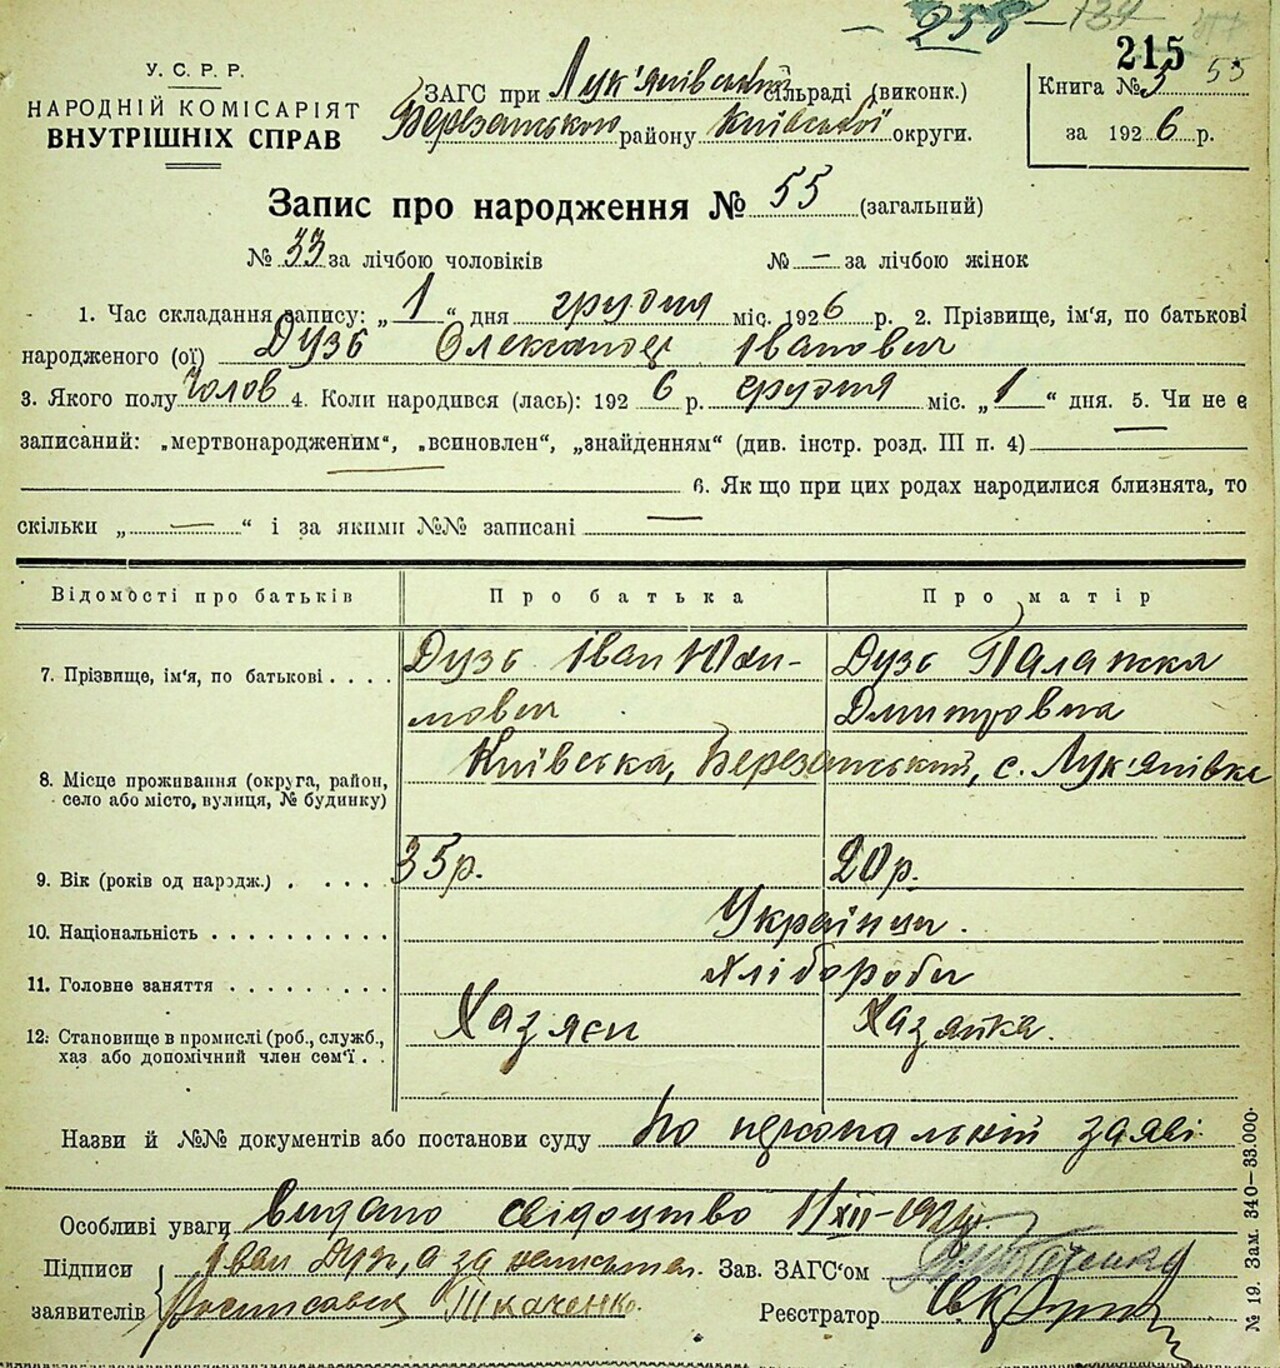 258 — 134
215
У. С. Р. Р.
НАРОДНІЙ КОМІСАРІЯТ
ВНУТРІШНІХ СПРАВ
ЗАГС при Лук'янівській сільраді (виконк.)
Березанського району Київської округи.
Книга № 3 55
за 1926 р.
Запис про народження № 55 (загальний)
№ 33 за лічбою чоловіків № — за лічбою жінок
1. Час складання запису: „ 1 “ дня грудня міс. 1926 р. 2. Прізвище, ім'я, по батькові
народженого (ої) Дузь Олександр Іванович
3. Якого полу Чолов 4. Коли народився (лась): 1926 р. грудня міс. „ 1 “ дня. 5. Чи не є
записаний: „мертвонародженим“, „всиновлен“, „знайденням“ (див. інстр. розд. III п. 4) —
— 6. Як що при цих родах народилися близнята, то
скільки „ — “ і за якими №№ записані —
Відомості про батьків Про батька Про матір
7. Прізвище, ім'я, по батькові . . . . Дузь Іван Юхи- Дузь Палажка
мович Дмитровна
8. Місце проживання (округа, район, Київська, Березанський, с. Лук'янівка
село або місто, вулиця, № будинку)
9. Вік (років од народж.) . . . . . 35р. 20р.
10. Національність . . . . . . . . . . Українци.
11. Головне заняття . . . . . . . . . Хлібороби
12. Становище в промислі (роб., служб., Хазяєн Хазяйка.
хаз або допомічний член сем'ї . .
Назви й №№ документів або постанови суду По персональній заяві
Особливі уваги Видано свідоцтво 1/XII-1926р.
Підписи Іван Дузь, а за Зав. ЗАГС'ом
заявителів росписався Ткаченко. Реєстратор
№ 19. Зам. 340—33.000.